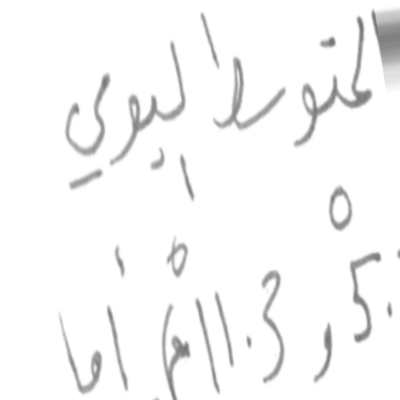 المتوسط اليومي
5. و 11.3°م، أما